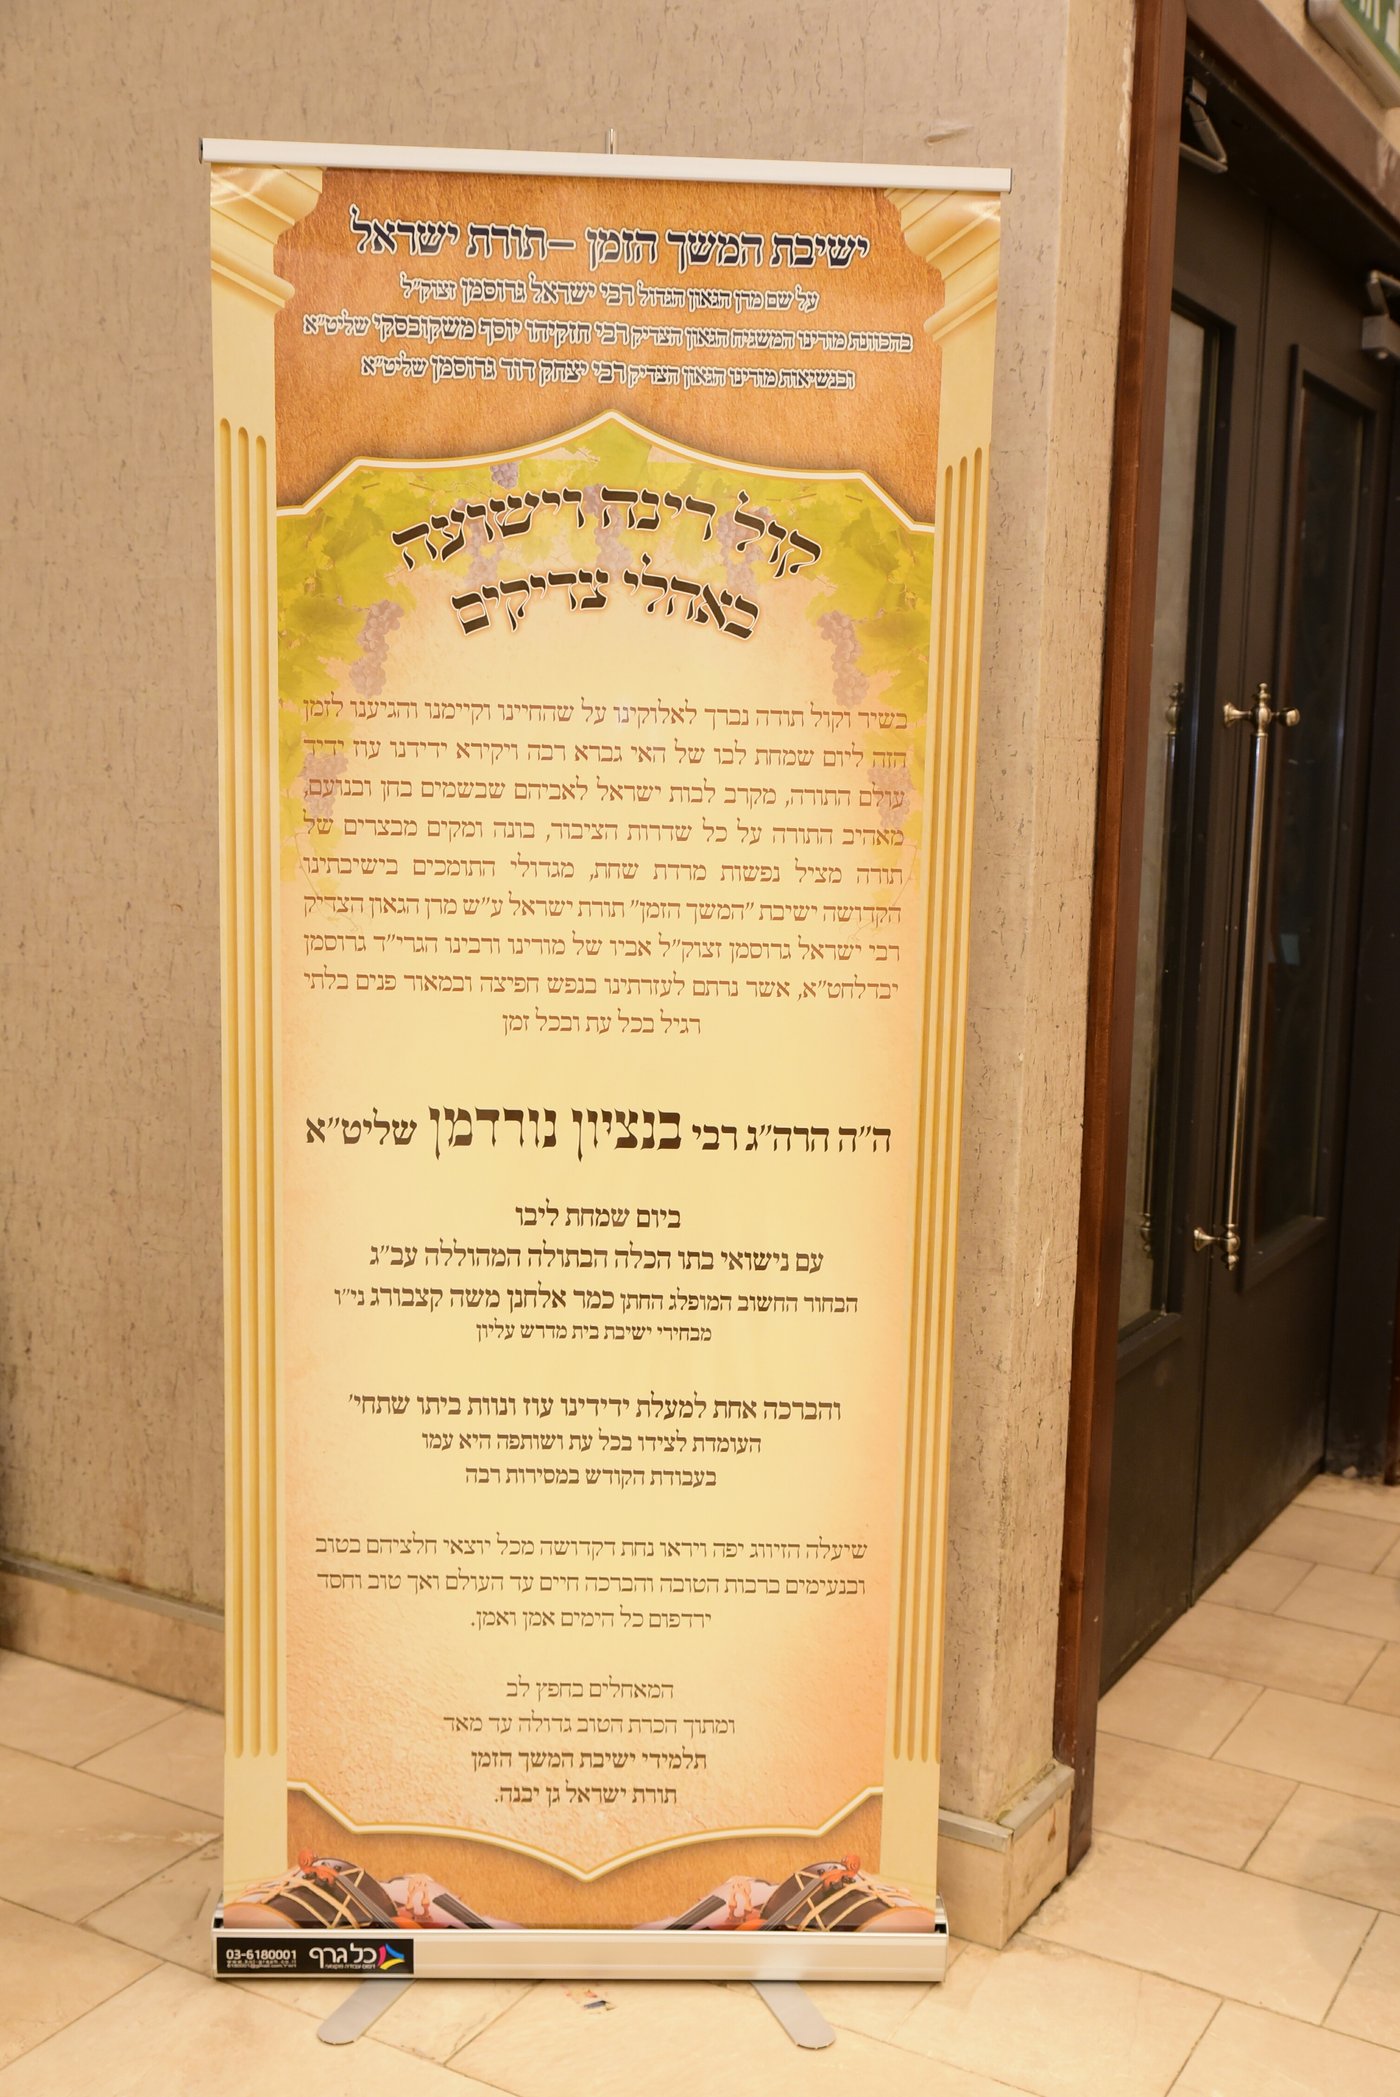 ישיבת המשך הזמן – תורת ישראל
על שם מרן הגאון הגדול רבי ישראל גרוסמן זצוק״ל
בהכוונת מורינו המשגיח הגאון הצדיק רבי חזקיהו יוסף משקובסקי שליט״א
ובנשיאות מורינו הגאון הצדיק רבי יצחק דוד גרוסמן שליט״א
קול רינה וישועה
באהלי צדיקים
בשיר וקול תודה נברך לאלוקינו על שהחיינו וקיימנו והגיענו לזמן
הזה ליום שמחת לבו של האי גברא רבה ויקירא ידידנו עוז ידיד
עולם התורה, מקרב לבות ישראל לאביהם שבשמים בחן ובנועם,
מאהיב התורה על כל שדרות הציבור, בונה ומקים מבצרים של
תורה מציל נפשות מרדת שחת, מגדולי התומכים בישיבתינו
הקדושה ישיבת "המשך הזמן" תורת ישראל ע״ש מרן הגאון הצדיק
רבי ישראל גרוסמן זצוק״ל אביו של מורינו ורבינו הגרי״ד גרוסמן
יבדלחט״א, אשר נרתם לעזרתינו בנפש חפיצה ובמאור פנים בלתי
רגיל בכל עת ובכל זמן
ה״ה הרה״ג רבי בנציון נורדמן שליט״א
ביום שמחת ליבו
עם נישואי בתו הכלה הבתולה המהוללה עב״ג
הבחור החשוב המופלג החתן כמר אלחנן משה קצבורג ני״ו
מבחירי ישיבת בית מדרש עליון
והברכה אחת למעלת ידידינו עוז ונוות ביתו שתחי׳
העומדת לצידו בכל עת ושותפה היא עמו
בעבודת הקודש במסירות רבה
שיעלה הזיווג יפה ויראו נחת דקדושה מכל יוצאי חלציהם בטוב
ובנעימים ברבות הטובה והברכה חיים עד העולם ואך טוב וחסד
ירדפום כל הימים אמן ואמן.
המאחלים בחפץ לב
ומתוך הכרת הטוב גדולה עד מאד
תלמידי ישיבת המשך הזמן
תורת ישראל גן יבנה.
כל גרף
03-6180001